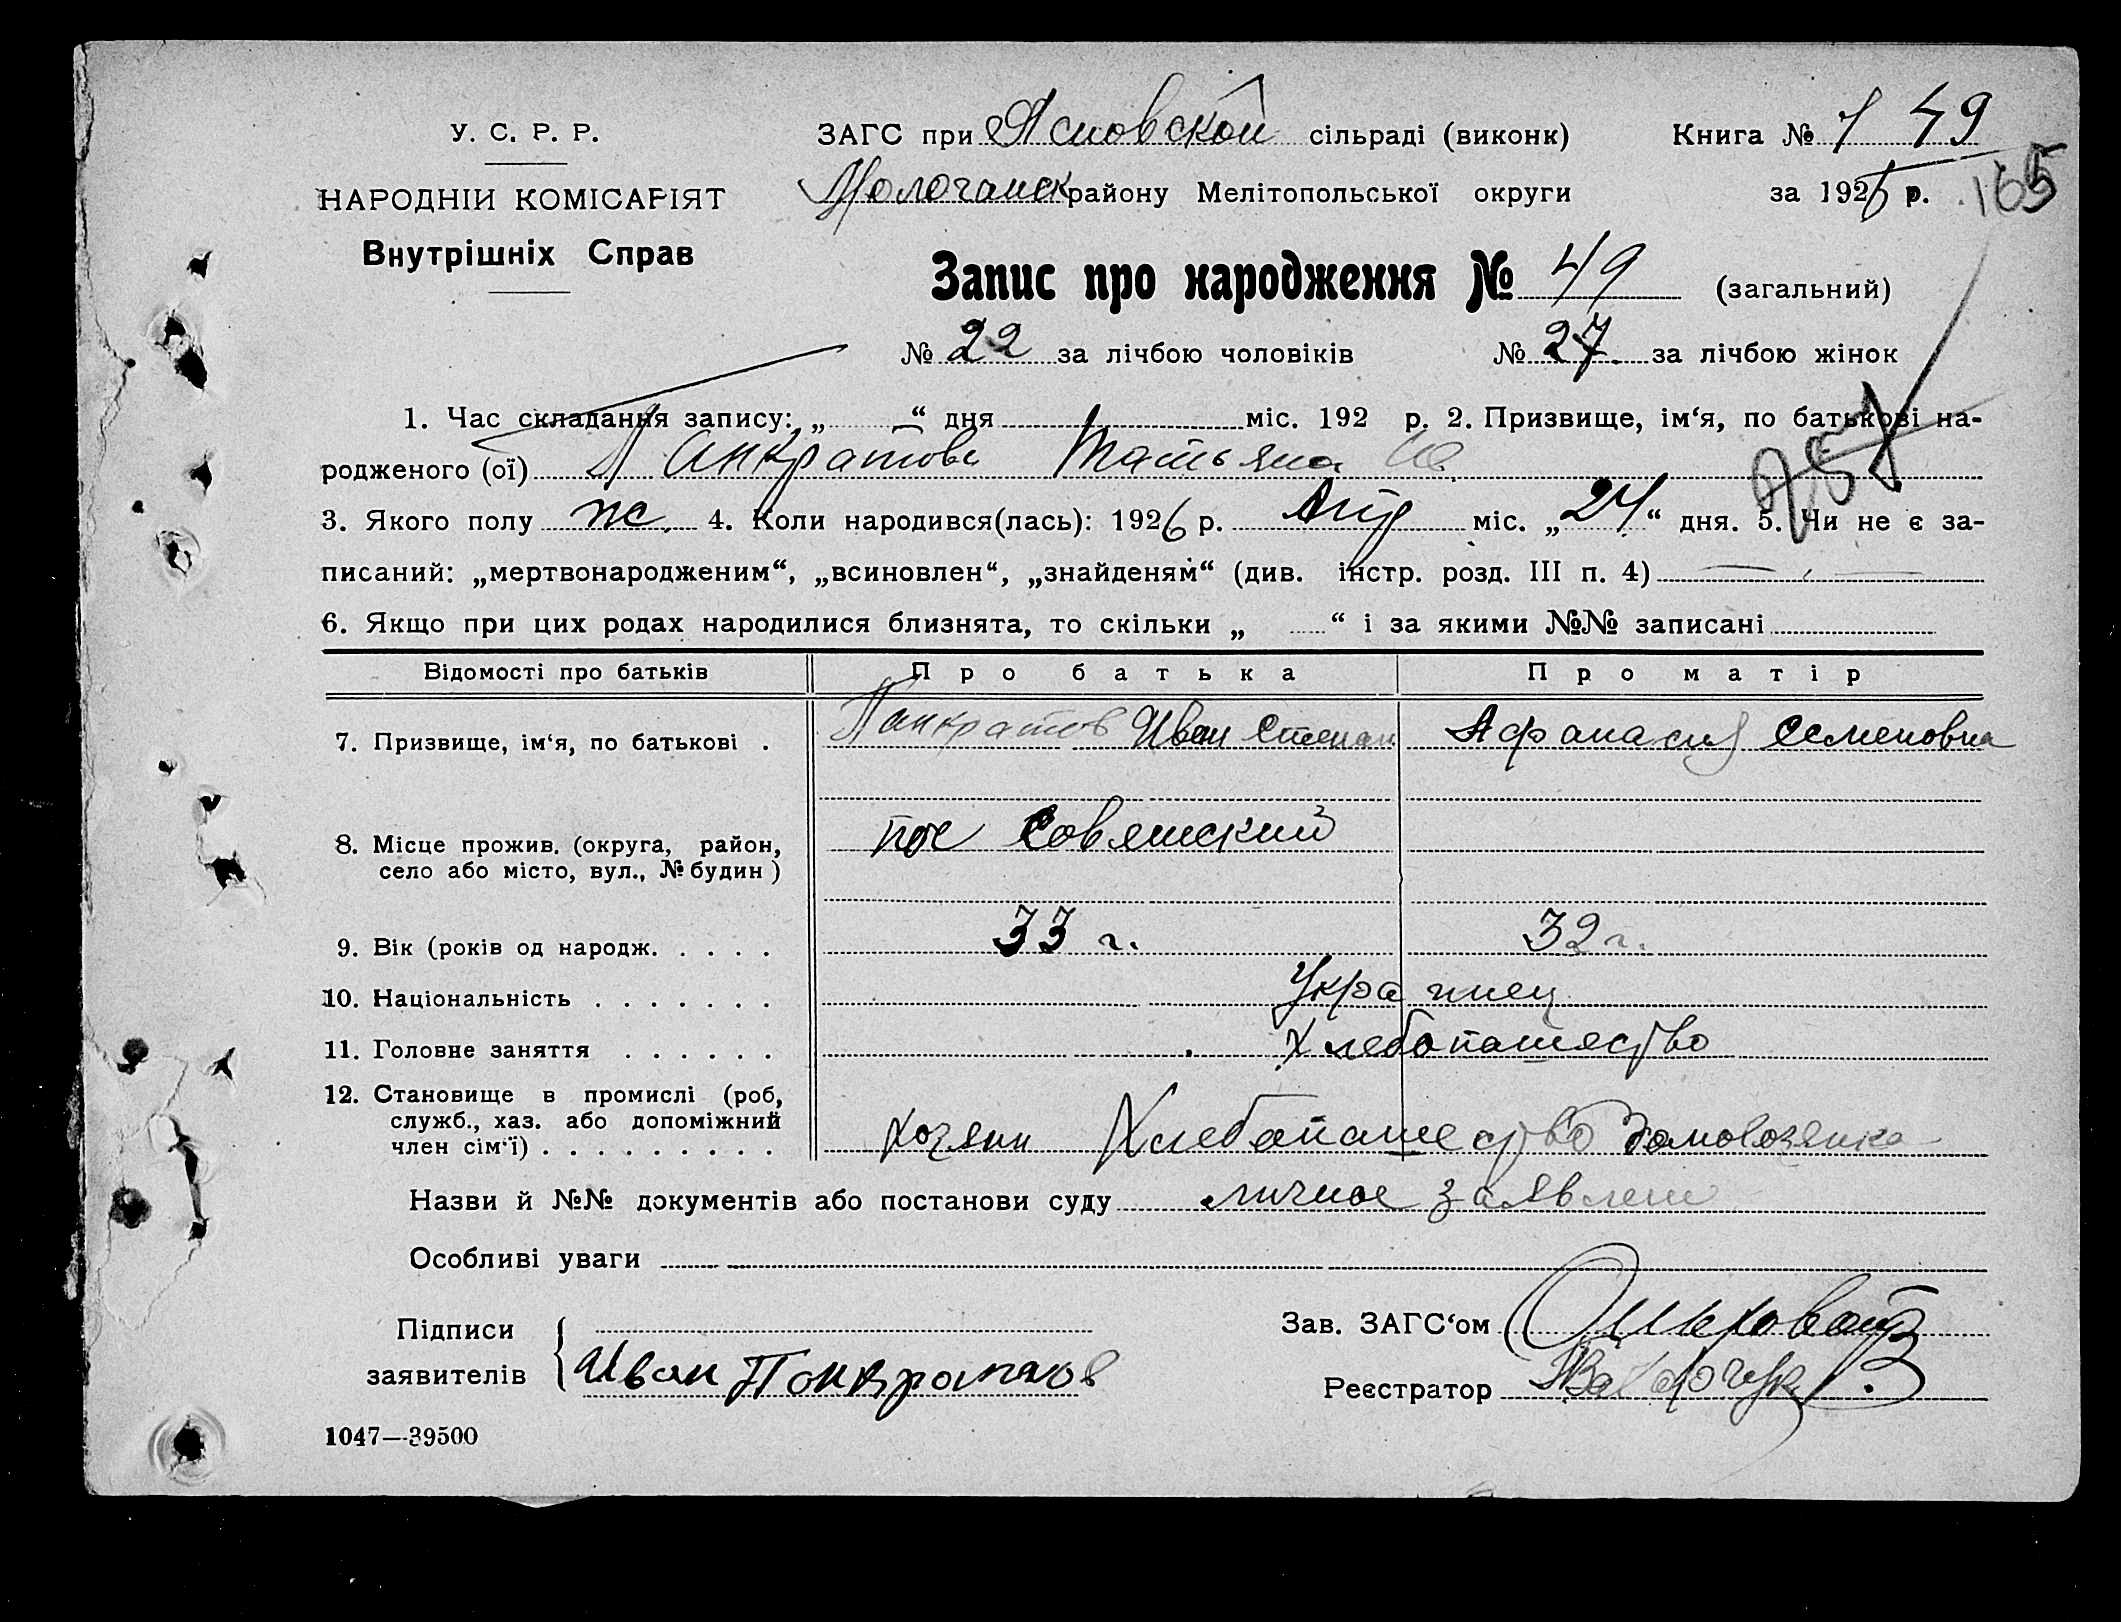 У. С. Р. Р.
НАРОДНІЙ КОМІСАРІЯТ
Внутрішніх Справ
ЗАГС при Ясновской сільраді (виконк)
Молочанск району Мелітопольської округи
Книга № 1 49
за 1926 р. 165
Запис про народження № 49 (загальний)
№ 22 за лічбою чоловіків № 27. за лічбою жінок
1. Час складання запису: „ “ дня міс. 192 р. 2. Призвище, ім‘я, по батькові на-
родженого (ої) Панкратова Татьяна Ив
3. Якого полу ж. 4. Коли народився(лась): 1926 р. Апр міс. „24“ дня. 5. Чи не є за-
писаний: „мертвонародженим“, „всиновлен“, „знайденям“ (див. інстр. розд. III п. 4)
6. Якщо при цих родах народилися близнята, то скільки „ “ і за якими №№ записані
Відомості про батьків Про батька Про матір
7. Призвище, ім‘я, по батькові . Панкратов Иван Степан Афанасия Семеновна
8. Місце прожив. (округа, район,
село або місто, вул., № будин) пос
9. Вік (років од народж. . . . . 33 г. 32 г.
10. Національність . . . . . . . Украинец
11. Головне заняття . . . . . . Хлебопашество
12. Становище в промислі (роб,
служб., хаз. або допоміжний
член сім‘ї) . . . . . . . . . Хозяин Хлебопашество домохозяйка
Назви й №№ документів або постанови суду личное заявлен
Особливі уваги
Підписи
заявителів Иван Понкратов
Зав. ЗАГС‘ом
Реєстратор
1047—39500